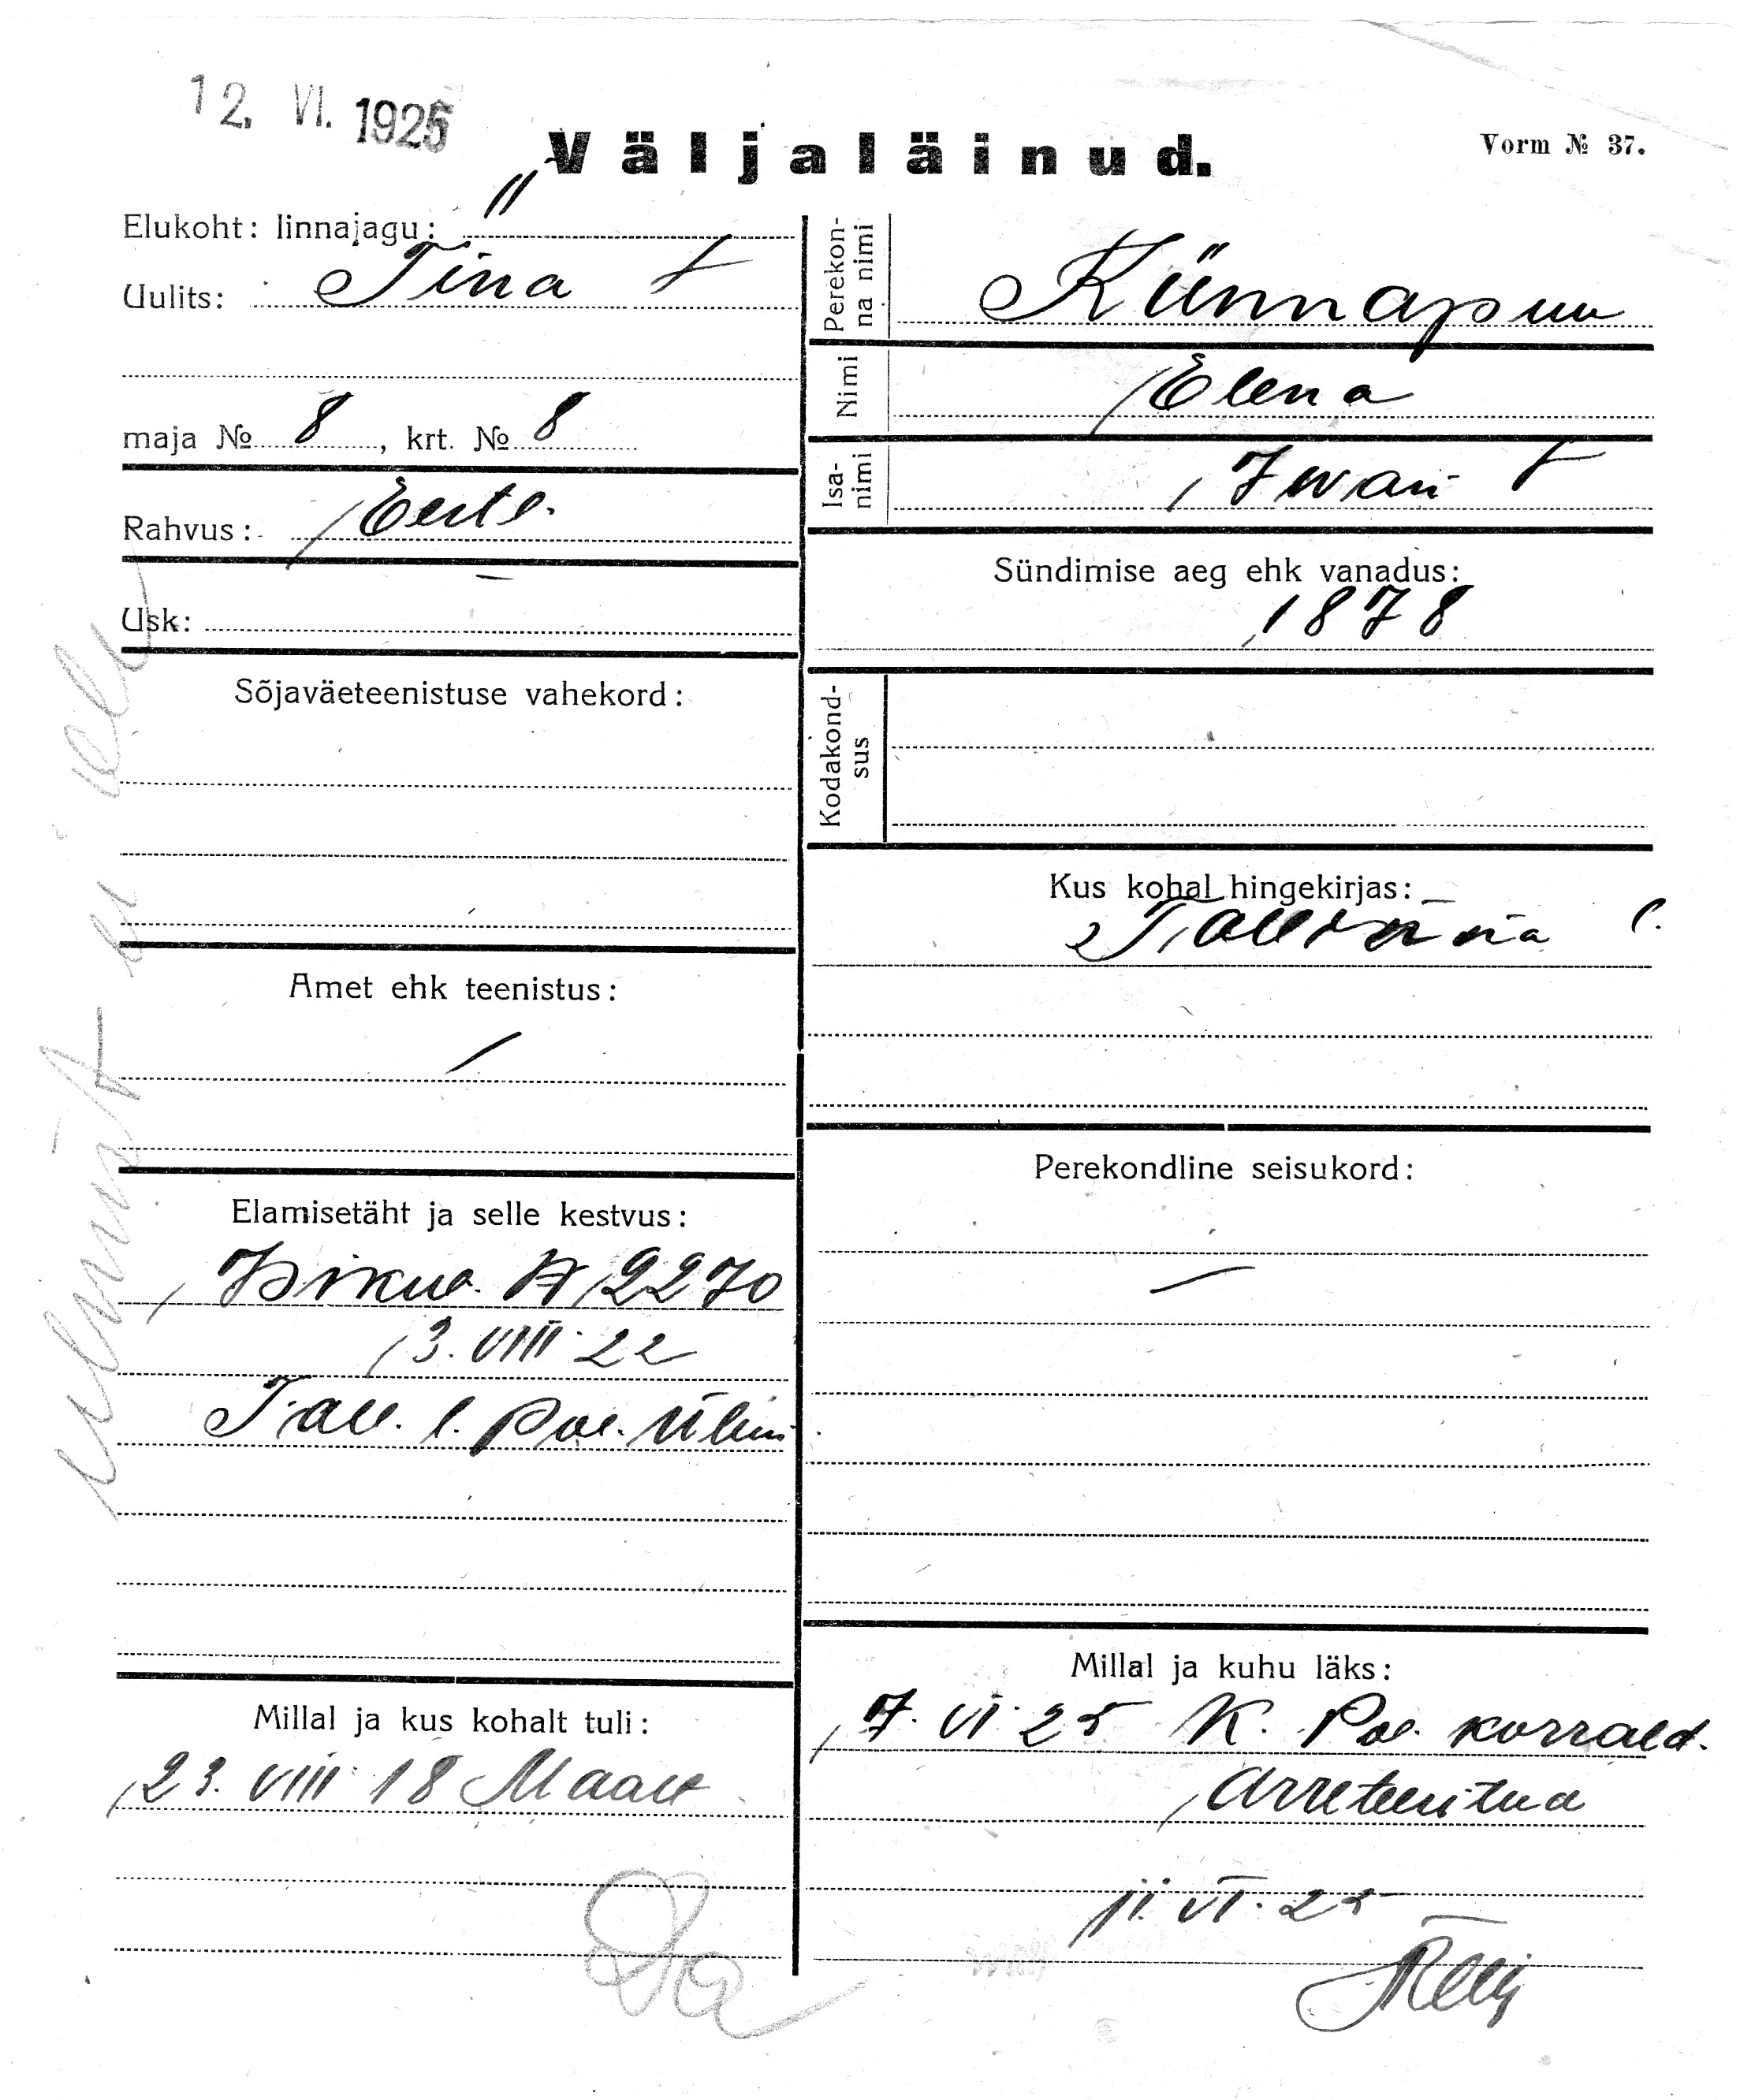 12. VI. 1925
Väljaläinud.
Vorm № 37.
Elukoht: linnajagu: "
Uulits: Tina
maja № 8, krt. № 8
Rahvus: Eestl.
Usk: —
Sõjaväeteenistuse vahekord:
Amet ehk teenistus:
/
Elamisetäht ja selle kestvus:
Isiktun. A 2270
3. VIII 22
Tall. l. Pol. Ülem
Millal ja kus kohalt tuli:
23. VIII 18 Maalt
Perekonna nimi
Künnapuu
Nimi
Elena
Isanimi
Iwan
Sündimise aeg ehk vanadus:
1878
Kodakondsus
Kus kohal hingekirjas:
Tallinna l.
Perekondline seisukord:
—
Millal ja kuhu läks:
7. VI 25 K. Pol. korrald.
Arreteeritud
11. VI. 25
ei ela